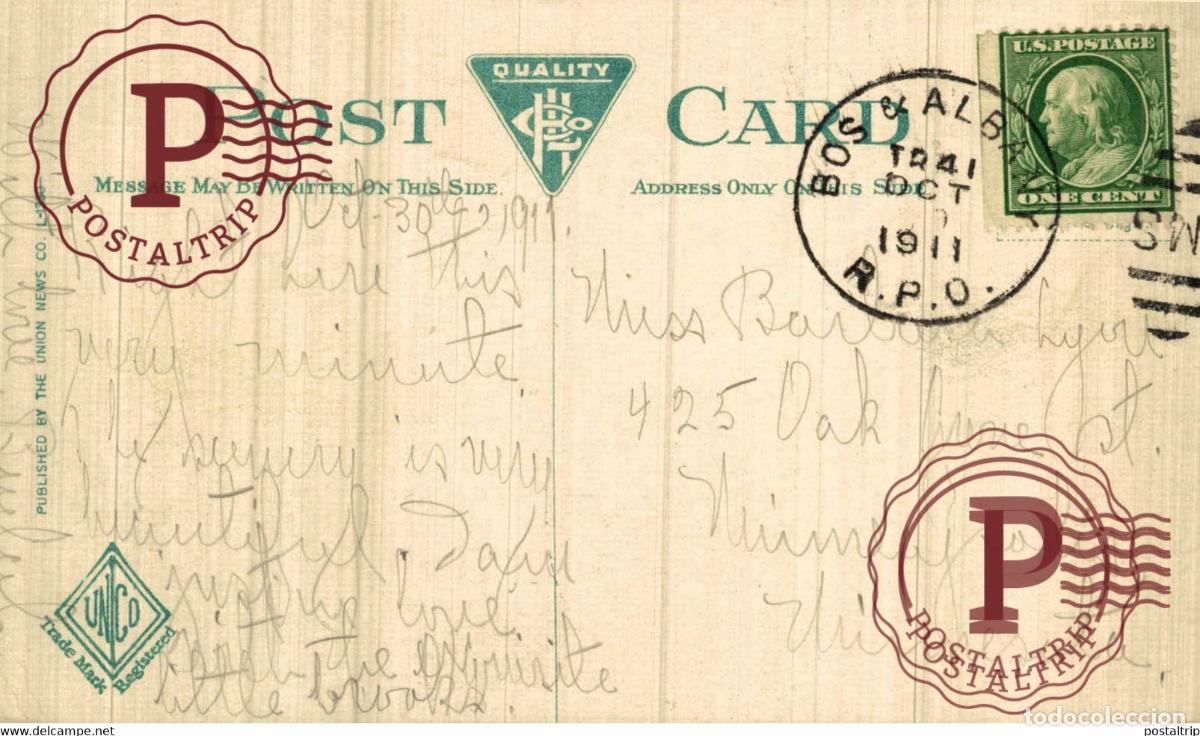 POST CARD
QUALITY
MESSAGE MAY BE WRITTEN ON THIS SIDE.
ADDRESS ONLY ON THIS SIDE
U.S. POSTAGE
ONE CENT
BOS & ALBANY
TR 41
OCT
1911
R.P.O.
RMS
P
POSTALTRIP
PUBLISHED BY THE UNION NEWS CO.
Oct 30th 1911.
Right here this
very minute.
The scenery is very
beautiful.
just
love.
the exquisite
little brooks.
UNCO
Trade Mark Registered
Miss Barbara Lyon
425 Oak Grove St.
Minneapolis
P
POSTALTRIP
POSTALTRIP
todocoleccion
www.delcampe.net
postaltrip